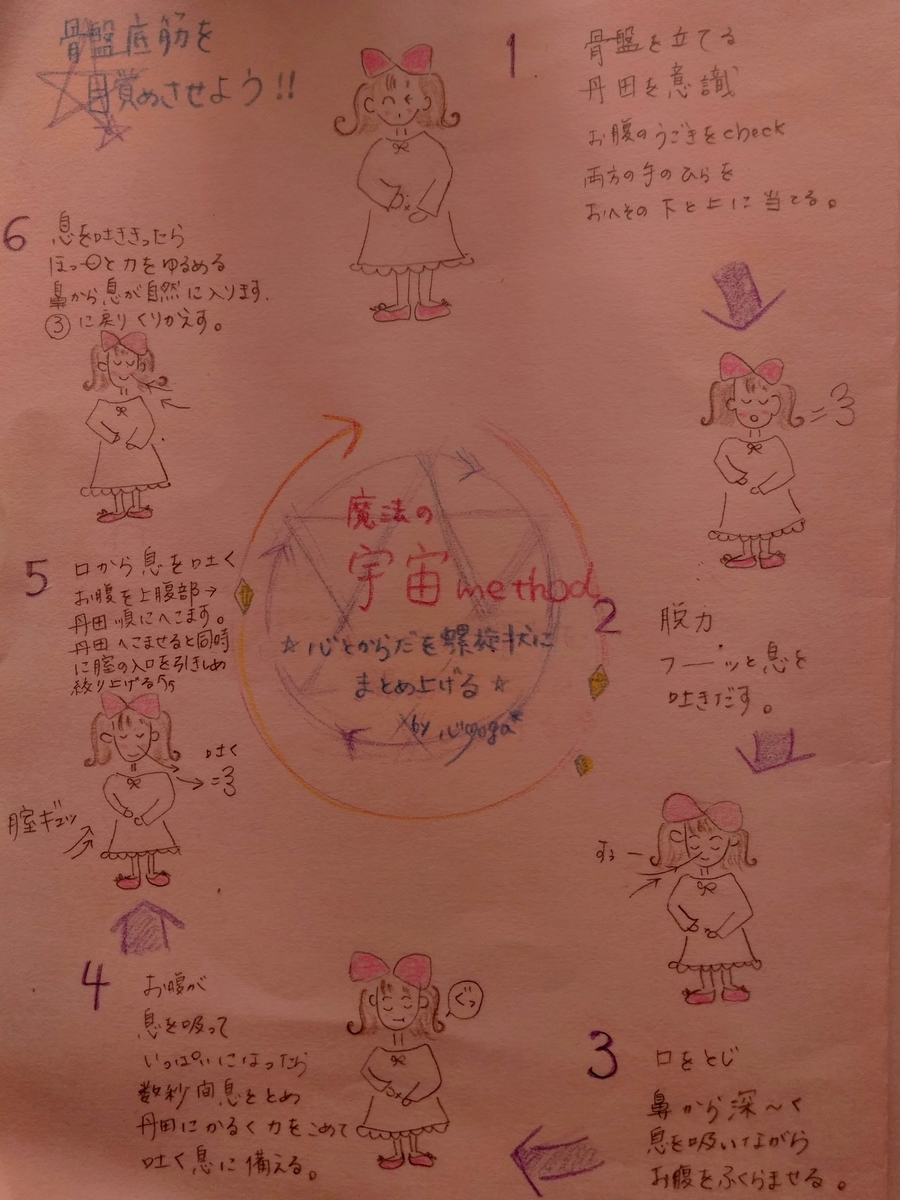 骨盤底筋を
目覚めさせよう!!
1
骨盤を立てる
丹田を意識
お腹のうごきをcheck
両方の手のひらを
おへその下と上に当てる。
2
脱力
フーーッと息を
吐きだす。
3
口をとじ
鼻から深〜く
息を吸いながら
お腹をふくらませる。
すぅー
4
お腹が
息を吸って
いっぱいになったら
数秒間息をとめ
丹田にかるく力をこめて
吐く息に備える。
ぐっ
5
口から息を吐く
お腹を上腹部→
丹田順にへこます。
丹田へこませると同時
に膣の入口を引きしめ
絞り上げる
吐く
膣ギュッ
6
息を吐ききったら
ほっと力をゆるめる
鼻から息が自然に入ります.
③に戻りくりかえす。
魔法の
宇宙method
☆心とからだを螺旋状に
まとめ上げる☆
by 心yoga*